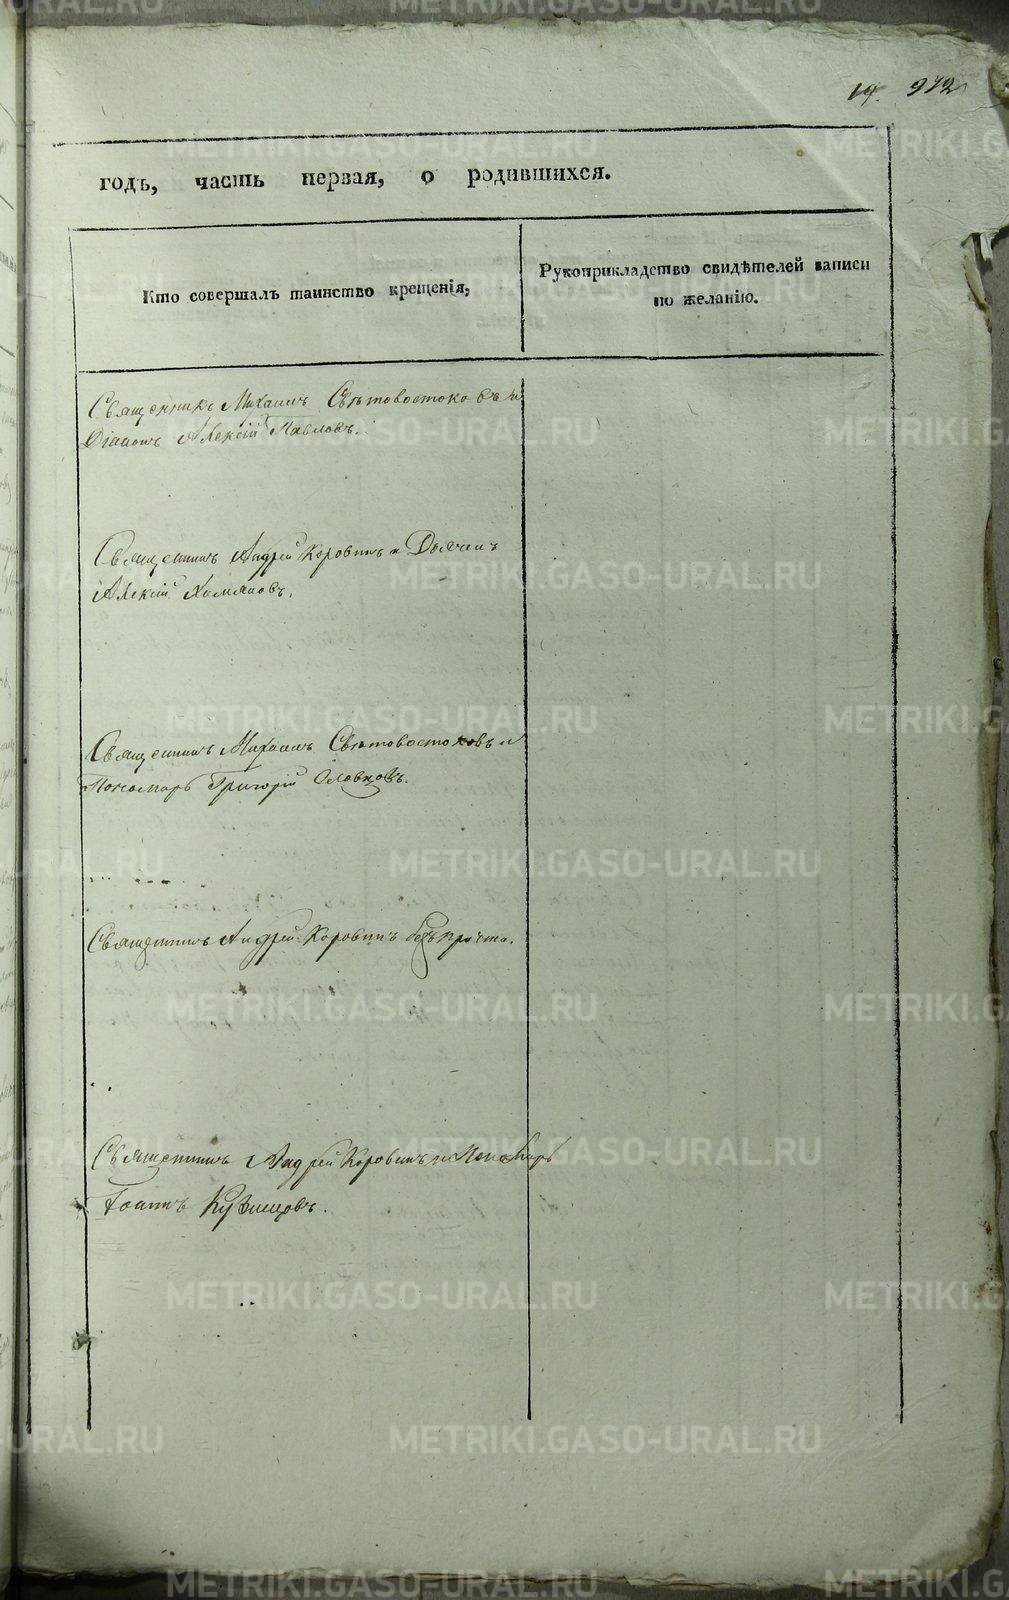 19. 972
годъ, часть первая, о родившихся.
Кто совершалъ таинство крещенія,
Рукоприкладство свидѣтелей записи
по желанію.
Священникъ Михаилъ Свѣтовостоковъ и
Діаконъ Алексій Павловъ.
Священникъ Андрей Коровинъ и Дьячекъ
Алексій Хомяковъ.
Священникъ Михаилъ Свѣтовостоковъ и
Пономарь Григорій Словцовъ.
Священникъ Андрей Коровинъ безъ причта.
Священникъ Андрей Коровинъ и Пономарь
Іоаннъ Кузнецовъ.
METRIKI.GASO-URAL.RU